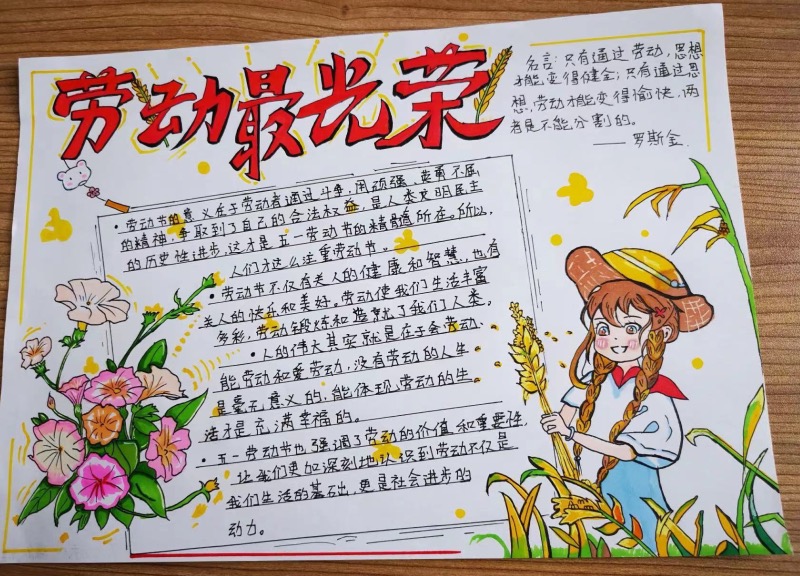 劳动最光荣
名言:只有通过劳动,思想
才能变得健全;只有通过思
想,劳动才能变得愉快,两
者是不能分割的。
——罗斯金
·劳动节的意义在于劳动者通过斗争,用顽强、英勇不屈
的精神,争取到了自己的合法权益,是人类文明民主
的历史性进步,这才是五一劳动节的精髓所在。所以,
人们才这么注重劳动节。
·劳动节不仅有关人的健康和智慧,也有
关人的快乐和美好。劳动使我们生活丰富
多彩,劳动锻炼和造就了我们人类。
·人的伟大其实就是在于会劳动、
能劳动和爱劳动,没有劳动的人生
是毫无意义的,能体现劳动的生
活才是充满幸福的。
·五一劳动节也强调了劳动的价值和重要性,
让我们更加深刻地认识到劳动不仅是
我们生活的基础,更是社会进步的
动力。